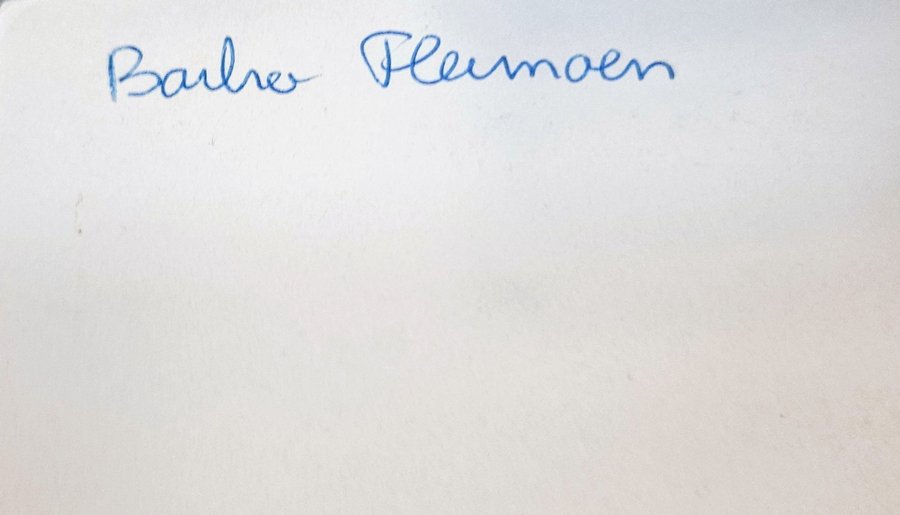 Barbro Flermoen